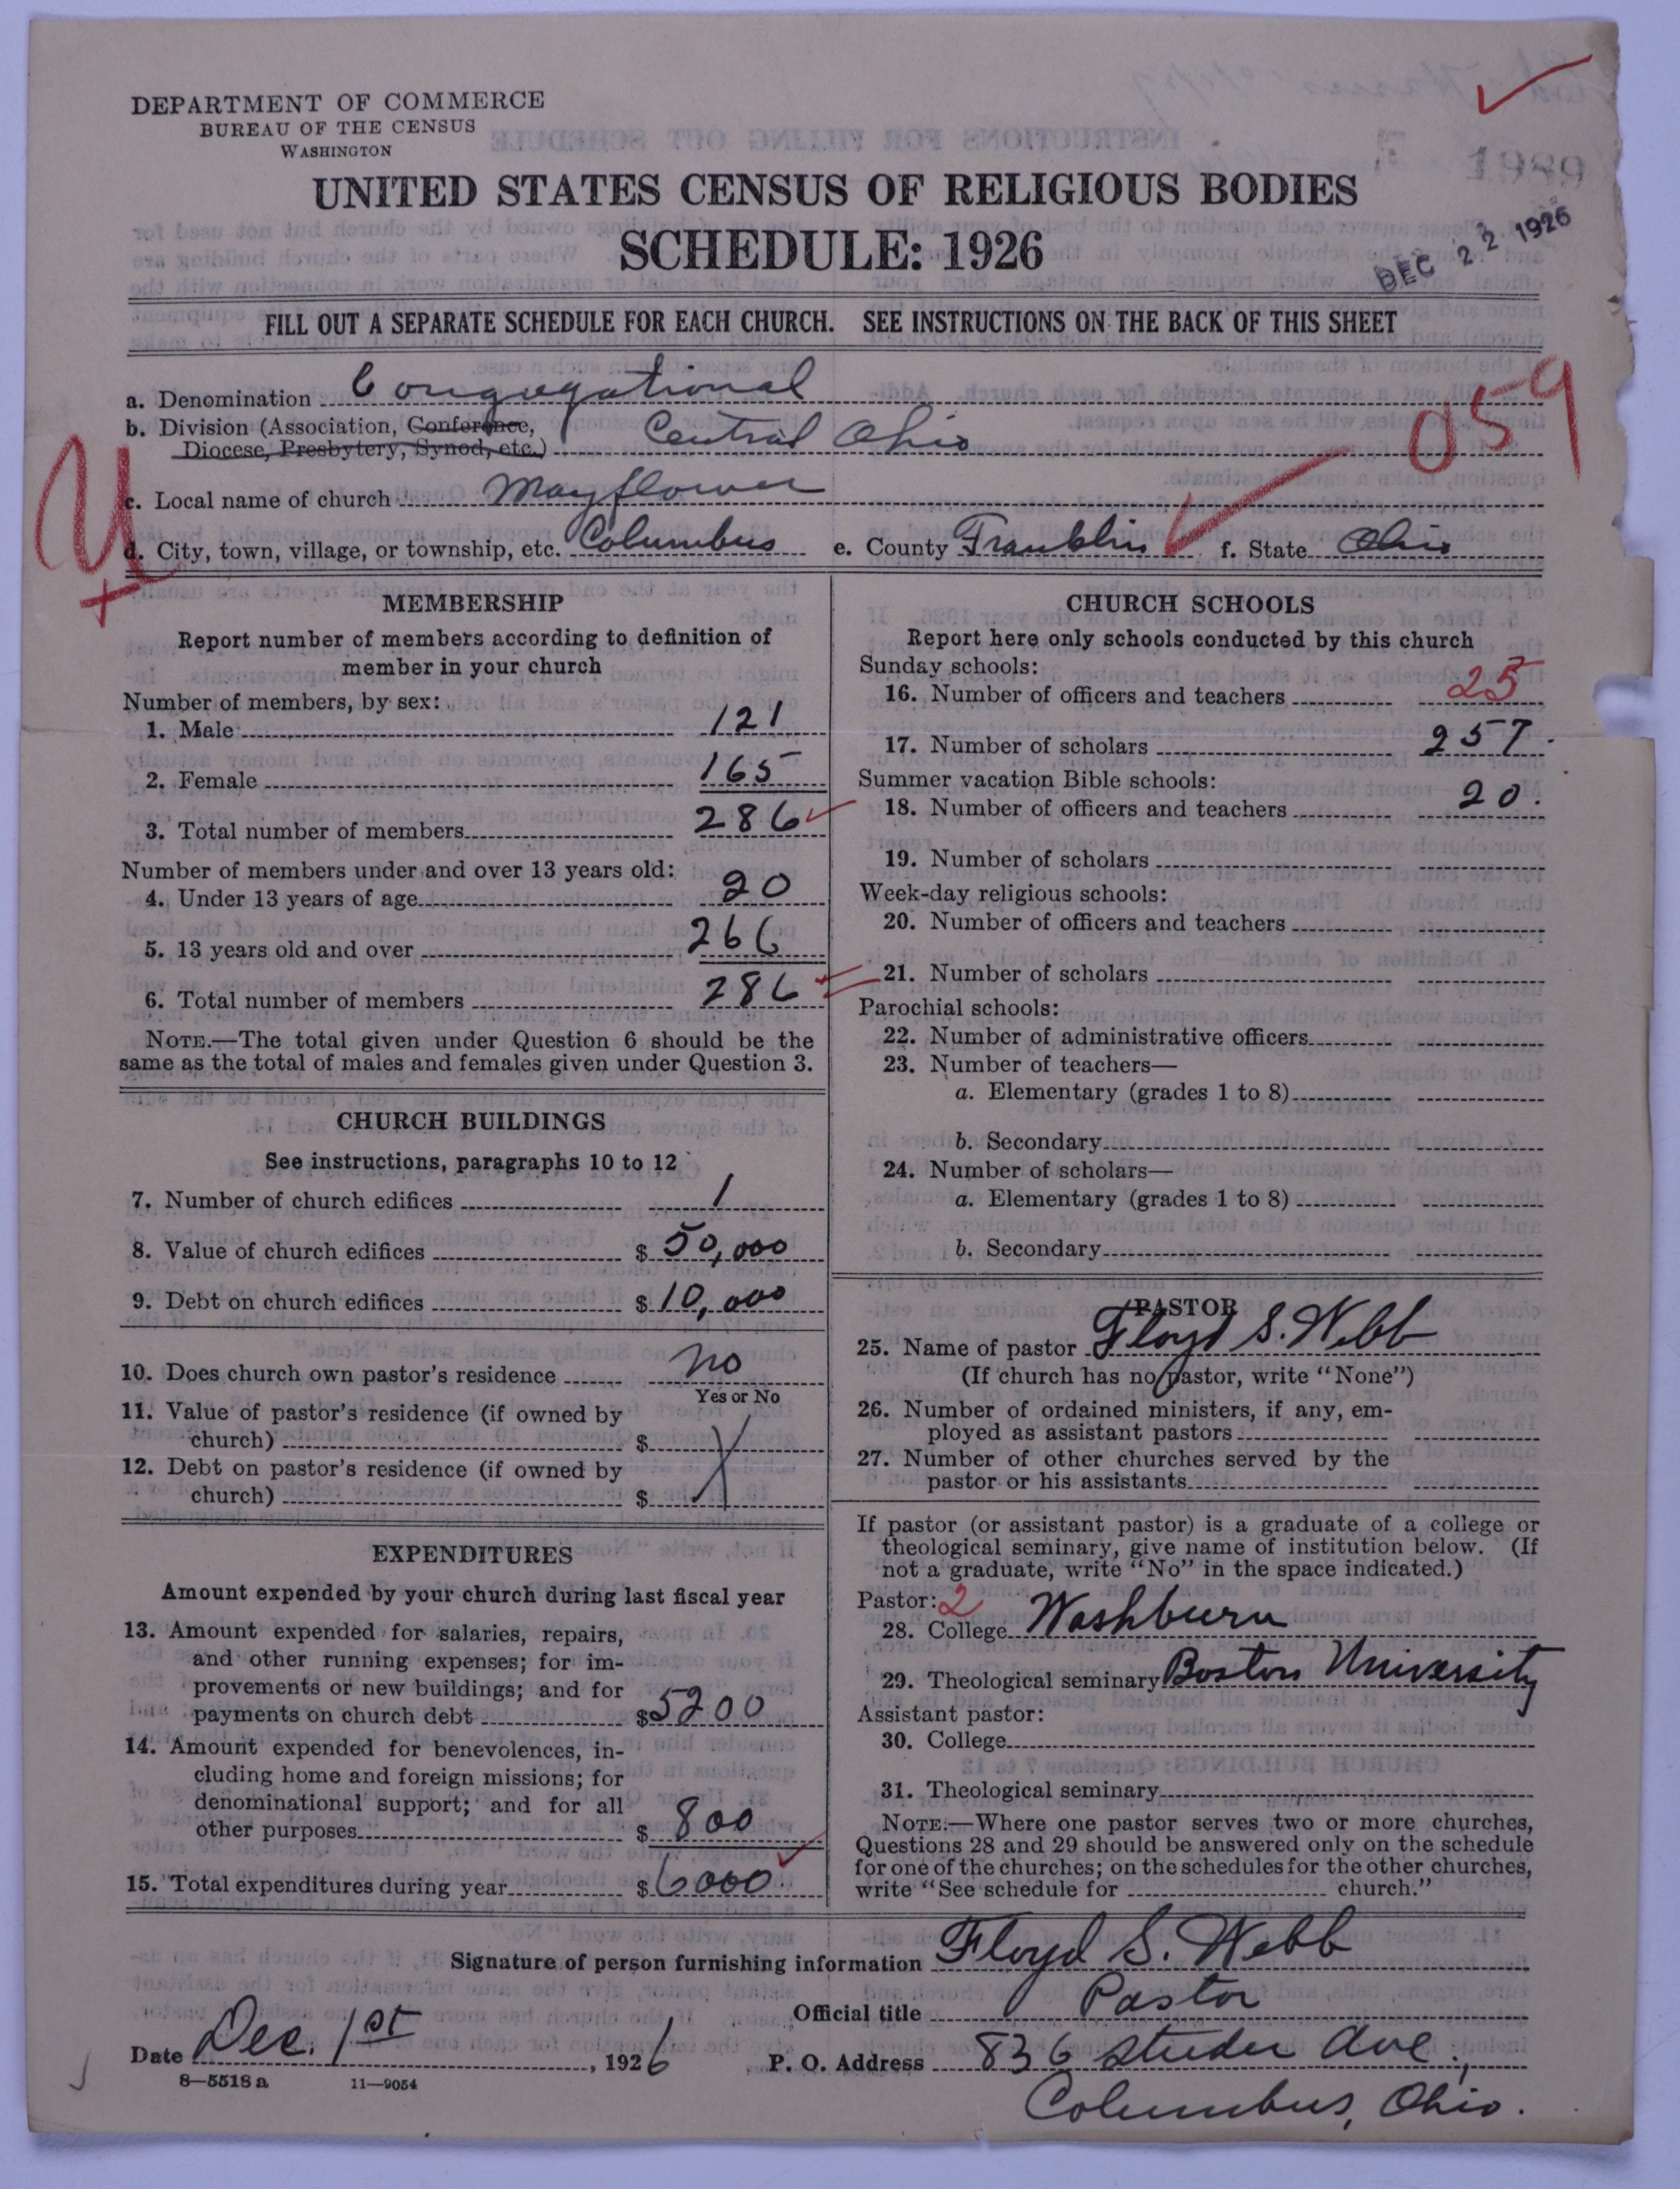 DEPARTMENT OF COMMERCE
BUREAU OF THE CENSUS
WASHINGTON
1989
UNITED STATES CENSUS OF RELIGIOUS BODIES
SCHEDULE: 1926
DEC 22 1926
FILL OUT A SEPARATE SCHEDULE FOR EACH CHURCH. SEE INSTRUCTIONS ON THE BACK OF THIS SHEET
a. Denomination Congregational
b. Division (Association, Conference,
Diocese, Presbytery, Synod, etc.) Central Ohio
059
c. Local name of church Mayflower
d. City, town, village, or township, etc. Columbus e. County Franklin f. State Ohio
MEMBERSHIP
Report number of members according to definition of
member in your church
Number of members, by sex:
1. Male 121
2. Female 165
3. Total number of members 286
Number of members under and over 13 years old:
4. Under 13 years of age 20
5. 13 years old and over 266
6. Total number of members 286
NOTE.—The total given under Question 6 should be the
same as the total of males and females given under Question 3.
CHURCH BUILDINGS
See instructions, paragraphs 10 to 12
7. Number of church edifices 1
8. Value of church edifices $ 50,000
9. Debt on church edifices $ 10,000
10. Does church own pastor's residence no
Yes or No
11. Value of pastor's residence (if owned by
church) $
12. Debt on pastor's residence (if owned by
church) $
EXPENDITURES
Amount expended by your church during last fiscal year
13. Amount expended for salaries, repairs,
and other running expenses; for im-
provements or new buildings; and for
payments on church debt $ 5200
14. Amount expended for benevolences, in-
cluding home and foreign missions; for
denominational support; and for all
other purposes $ 800
15. Total expenditures during year $ 6000
CHURCH SCHOOLS
Report here only schools conducted by this church
Sunday schools:
16. Number of officers and teachers 25
17. Number of scholars 257.
Summer vacation Bible schools:
18. Number of officers and teachers 20.
19. Number of scholars
Week-day religious schools:
20. Number of officers and teachers
21. Number of scholars
Parochial schools:
22. Number of administrative officers
23. Number of teachers—
a. Elementary (grades 1 to 8)
b. Secondary
24. Number of scholars—
a. Elementary (grades 1 to 8)
b. Secondary
PASTOR
25. Name of pastor Floyd S. Webb
(If church has no pastor, write "None")
26. Number of ordained ministers, if any, em-
ployed as assistant pastors
27. Number of other churches served by the
pastor or his assistants
If pastor (or assistant pastor) is a graduate of a college or
theological seminary, give name of institution below. (If
not a graduate, write "No" in the space indicated.)
Pastor: 2
28. College Washburn
29. Theological seminary Boston University
Assistant pastor:
30. College
31. Theological seminary
NOTE.—Where one pastor serves two or more churches,
Questions 28 and 29 should be answered only on the schedule
for one of the churches; on the schedules for the other churches,
write "See schedule for church."
Signature of person furnishing information Floyd S. Webb
Official title Pastor
Date Dec. 1st, 1926 P. O. Address 836 Studer Ave.,
Columbus, Ohio.
8—5518 a 11—9054